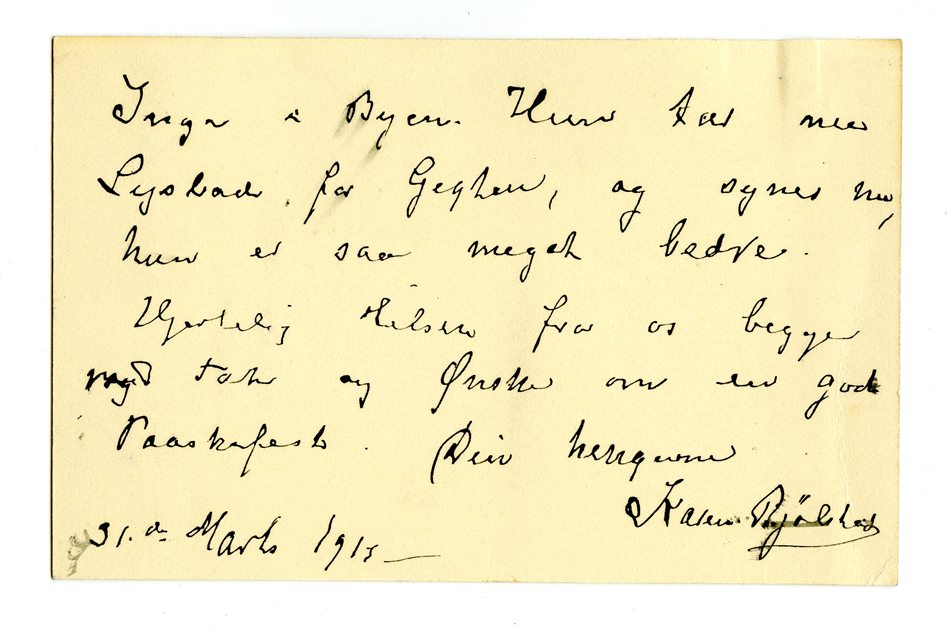 Inger i Byen. Hun tar nu
Lysbade for Gigten, og synes nu,
hun er saa meget bedre.
Hjertelig Hilsen fra os begge
med Tak og Ønske om en god
Paaskefest. Din hengivne
Karen Bjölstad
31.de Marts 1915